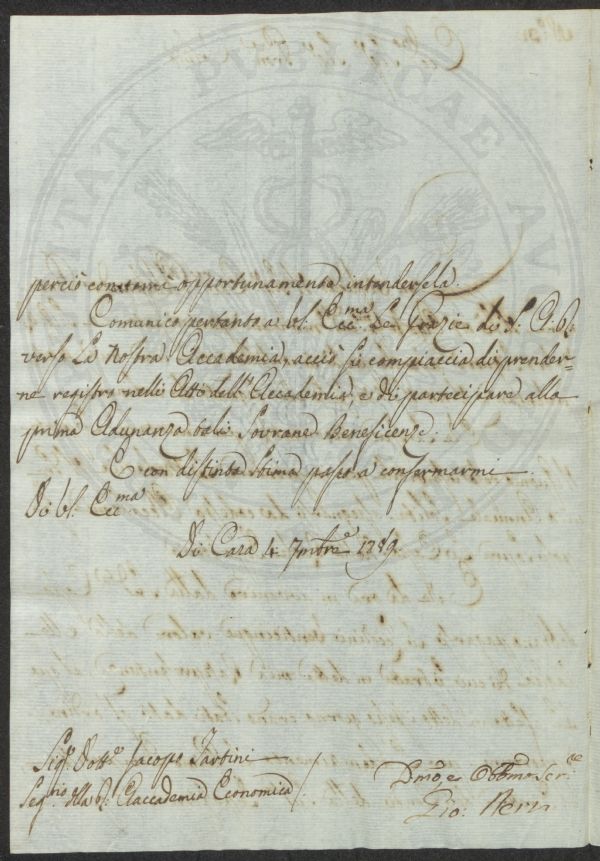 perciò con terni opportunamente intendersela.
Comunico pertanto a VS: Ecc.ma Le Grazie di S: A: R:
verso La Nostra Accademia, acciò si compiaccia di prender=
ne registro nelli Atti dell'Accademia, e di partecipare alla
prima Adunanza tali Sovrane Beneficenze.
E con distinta stima passo a confermarmi
Di VS: Ecc.ma
Di Casa 4 7mbre 1789.
Sig.r Dott.e Jacopo Tartini
Seg.rio della R: Accademia Economica
Dmo e Obbmo Ser.re
Gio: